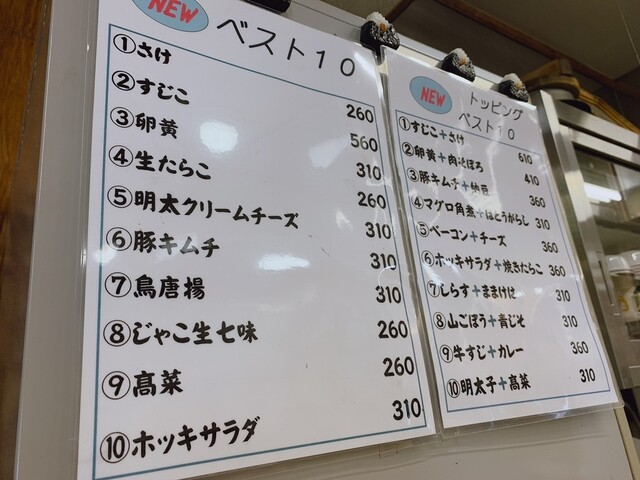 NEW
ベスト10
①さけ 260
②すじこ 560
③卵黄 310
④生たらこ 260
⑤明太クリームチーズ 310
⑥豚キムチ 310
⑦鳥唐揚 310
⑧じゃこ生七味 260
⑨髙菜 260
⑩ホッキサラダ 310
NEW
トッピング
ベスト10
①すじこ+さけ 610
②卵黄+肉そぼろ 410
③豚キムチ+納豆 360
④マグロ角煮+はとうがらし 310
⑤ベーコン+チーズ 360
⑥ホッキサラダ+焼きたらこ 360
⑦しらす+ままけは 310
⑧山ごぼう+青じそ 310
⑨牛すじ+カレー 360
⑩明太子+髙菜 310